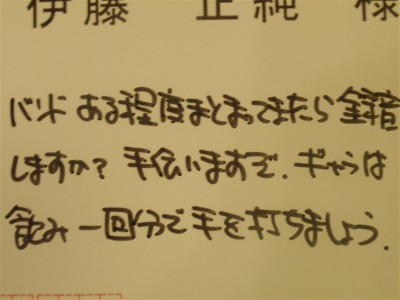 伊藤 正純 様
バンド ある程度まとまってきたら 録音
しますか？ 手伝いますぞ. ギャラは
飲み一回分で手を打ちましょう.